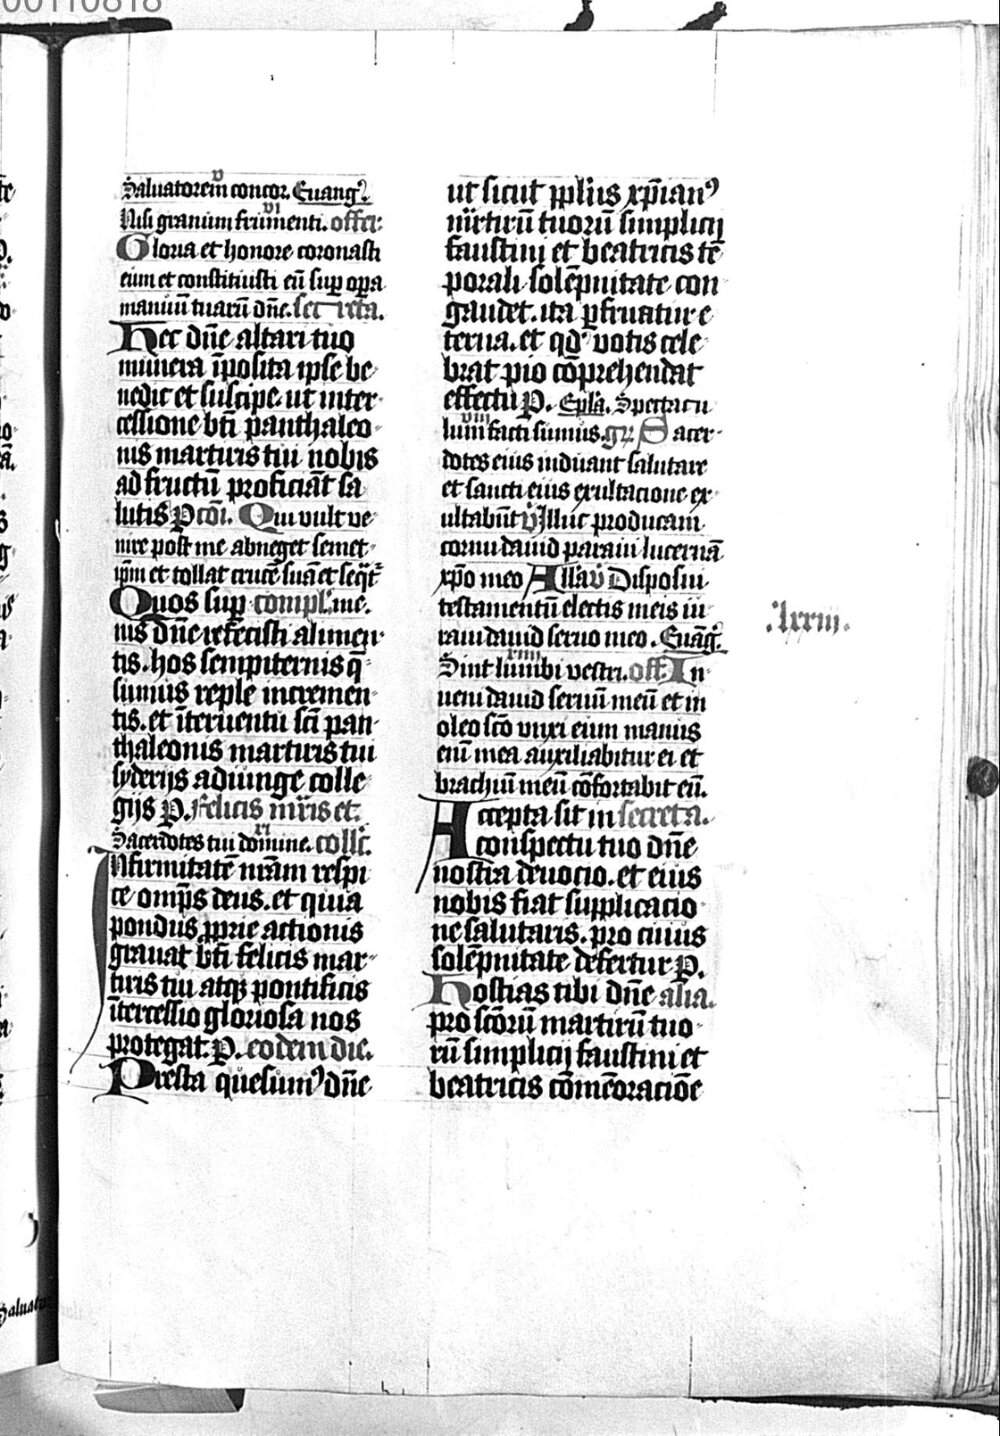 00110818
Saluatorem concor. Euangͥ.
v
Nisi granum frumenti. offer.
vi
Gloria et honore coronasti
eum et constituisti eū sup opa
manuū tuarū dn̄e. secreta.
Hec dn̄e altari tuo
munera īposita ipse be
nedic et suscipe. ut inter
cessione bt̄i panthaleo
nis martiris tui nobis
ad fructū proficiāt sa
lutis Pcōi. Qui vult ve
nire post me abneget semet
ip̄m et tollat crucē suā et seq̄t᷑
Quos sup compl. me.
nis dn̄e refecisti alimen
tis. hos sempiternis q̄
sumus reple incremen
tis. et īteruentu sc̄i pan
thaleonis martiris tui
syderijs adiunge colle
gijs P. Felicis mr̄is et.
Sacerdotes tui domine. coll̄c.
xi
Infirmitatē nr̄am respi
ce omp̄s deus. et quia
pondus pprie actionis
grauat bt̄i felicis mar
tiris tui atqꝫ pontificis
ītercessio gloriosa nos
protegat. P. eodem die.
Presta quesumꝰ dn̄e
ut sicut pplūs xp̄ianꝰ
mr̄tirū tuorū simplicij
faustini et beatricis tē
porali solēpnitate con
gaudet. ita pfruatur e
terna. et qd᷑ votis cele
brat pio cōprehendat
effectu P. Epl̄a. Spectacu
lum facti sumus. gr. Sacer
viii
dotes eius induant salutare
et sancti eius exultacione ex
ultabūt ℣ Illuc producam
cornu dauid paraui lucernā
xp̄o meo All̄a ℣ Disposui
testamentū electis meis iu
raui dauid seruo meo. Euāg̅.
Sint lumbi vestri. off. In
xiiii
ueni dauid seruū meū et in
oleo sc̄o vnxi eum manus
eniī mea auxiliabitur ei et
brachiū meū cōfortabit eū.
Accepta sit in secreta.
conspectu tuo dn̄e
nostra deuocio. et eius
nobis fiat supplicacio
ne salutaris. pro cuius
solēpnitate defertur P.
Hostias tibi dn̄e alia.
pro sc̄orū martirū tuo
rū simplicij faustini et
beatricis cōmēoracioē
.lxxiii.